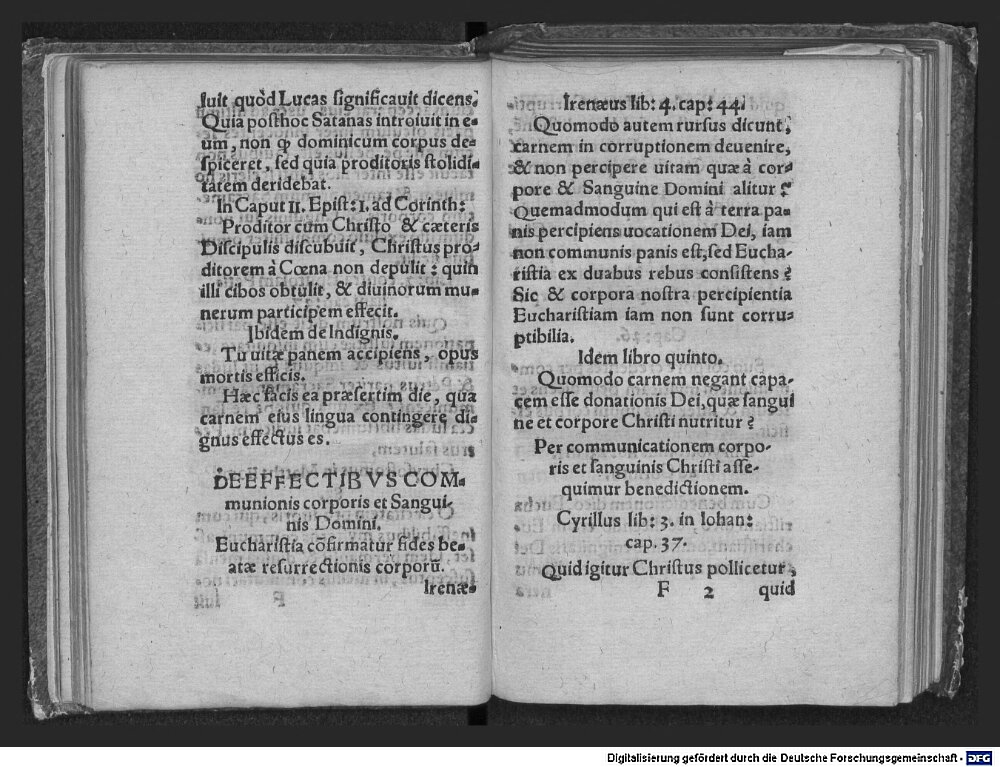 luit quòd Lucas significauit dicens:
Quia posthoc Satanas introiuit in e⸗
um, non ꝙ dominicum corpus de⸗
spiceret, sed quia proditoris stolidi⸗
tatem deridebat.
In Caput 11. Epist: 1. ad Corinth:
Proditor cum Christo & cæteris
Discipulis discubuit, Christus pro⸗
ditorem à Cœna non depulit: quin
illi cibos obtulit, & diuinorum mu⸗
nerum participem effecit.
Ibidem de Indignis.
Tu uitæ panem accipiens, opus
mortis efficis.
Hæc facis ea præsertim die, qua
carnem eius lingua contingere di⸗
gnus effectus es.
DE EFFECTIBVS COM⸗
munionis corporis et Sangui⸗
nis Domini.
Eucharistia cōfirmatur fides be⸗
atæ resurrectionis corporū.
Irenæ⸗
Irenæus lib: 4. cap: 44.
Quomodo autem rursus dicunt,
carnem in corruptionem deuenire,
& non percipere uitam quæ à cor⸗
pore & Sanguine Domini alitur?
Quemadmodum qui est à terra pa⸗
nis percipiens uocationem Dei, iam
non communis panis est, sed Eucha⸗
ristia ex duabus rebus consistens?
Sic & corpora nostra percipientia
Eucharistiam iam non sunt corru⸗
ptibilia.
Idem libro quinto.
Quomodo carnem negant capa⸗
cem esse donationis Dei, quæ sangui
ne et corpore Christi nutritur?
Per communicationem corpo⸗
ris et sanguinis Christi asse⸗
quimur benedictionem.
Cyrillus lib: 3. in Iohan:
cap. 37.
Quid igitur Christus pollicetur,
F 2 quid
Digitalisierung gefördert durch die Deutsche Forschungsgemeinschaft - DFG